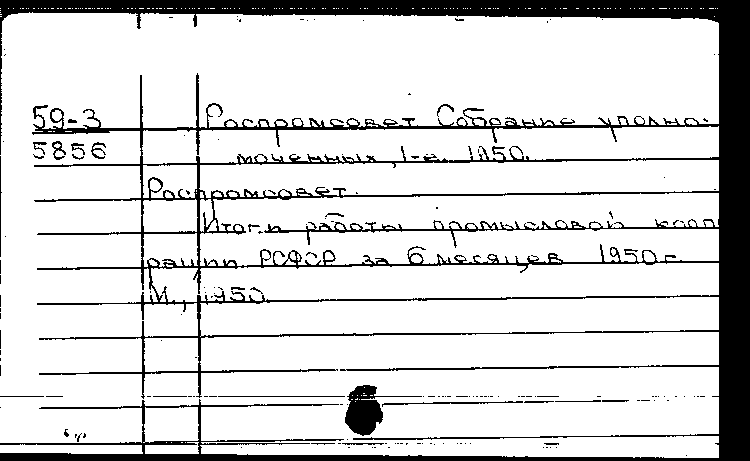 59-3 Роспромсовет Собрание уполно-
5856 моченных, 1-е. 1950.
Роспромсовет.
Итоги работы промысловой кооп
рации РСФСР за 6 месяцев 1950 г.
М., 1950.